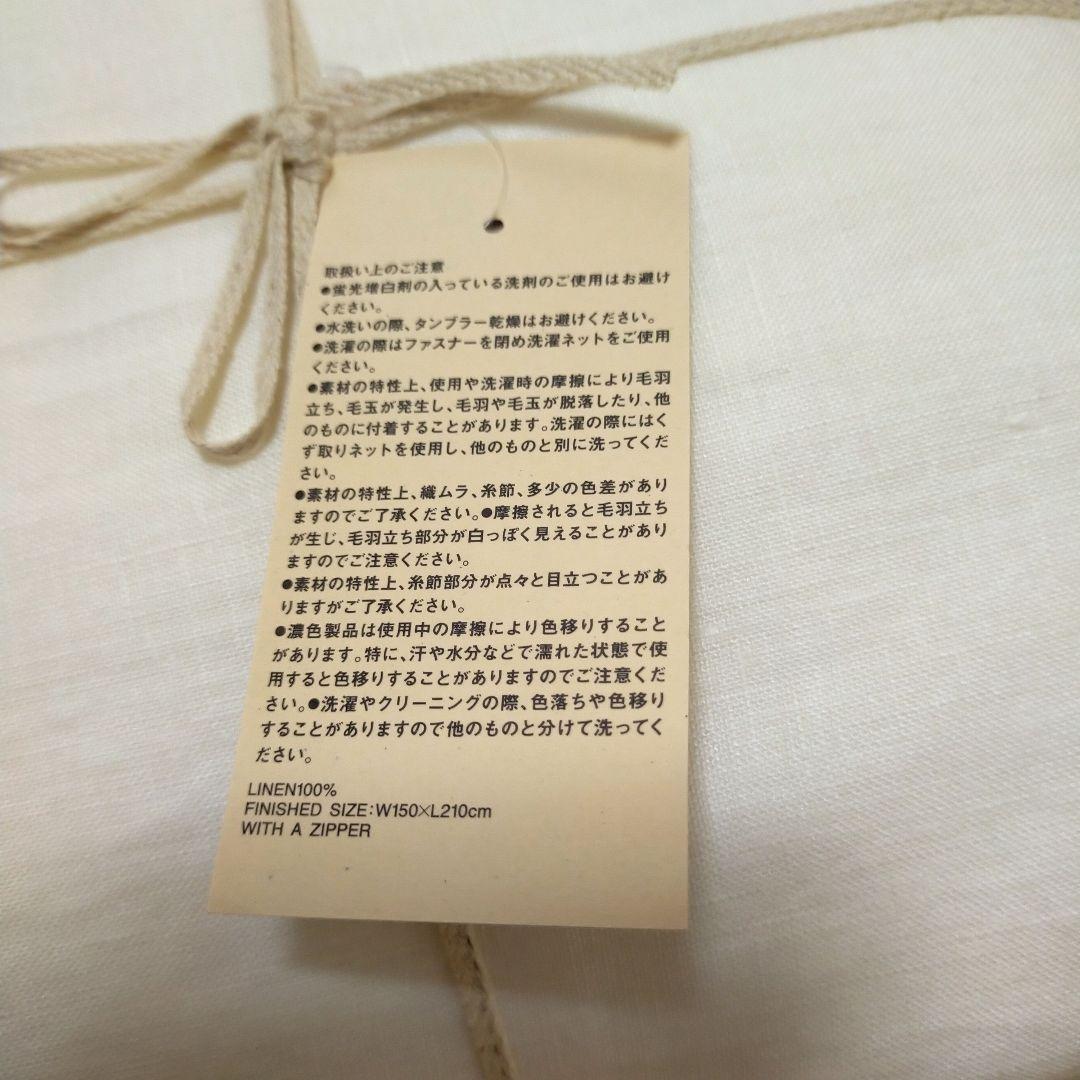 取扱い上のご注意
●蛍光増白剤の入っている洗剤のご使用はお避け
ください。
●水洗いの際、タンブラー乾燥はお避けください。
●洗濯の際はファスナーを閉め洗濯ネットをご使用
ください。
●素材の特性上、使用や洗濯時の摩擦により毛羽
立ち、毛玉が発生し、毛羽や毛玉が脱落したり、他
のものに付着することがあります。洗濯の際にはく
ず取りネットを使用し、他のものと別に洗ってくだ
さい。
●素材の特性上、織ムラ、糸節、多少の色差があり
ますのでご了承ください。●摩擦されると毛羽立ち
が生じ、毛羽立ち部分が白っぽく見えることがあり
ますのでご注意ください。
●素材の特性上、糸節部分が点々と目立つことがあ
りますがご了承ください。
●濃色製品は使用中の摩擦により色移りすること
があります。特に、汗や水分などで濡れた状態で使
用すると色移りすることがありますのでご注意くだ
さい。●洗濯やクリーニングの際、色落ちや色移り
することがありますので他のものと分けて洗ってく
ださい。
LINEN100%
FINISHED SIZE:W150×L210cm
WITH A ZIPPER